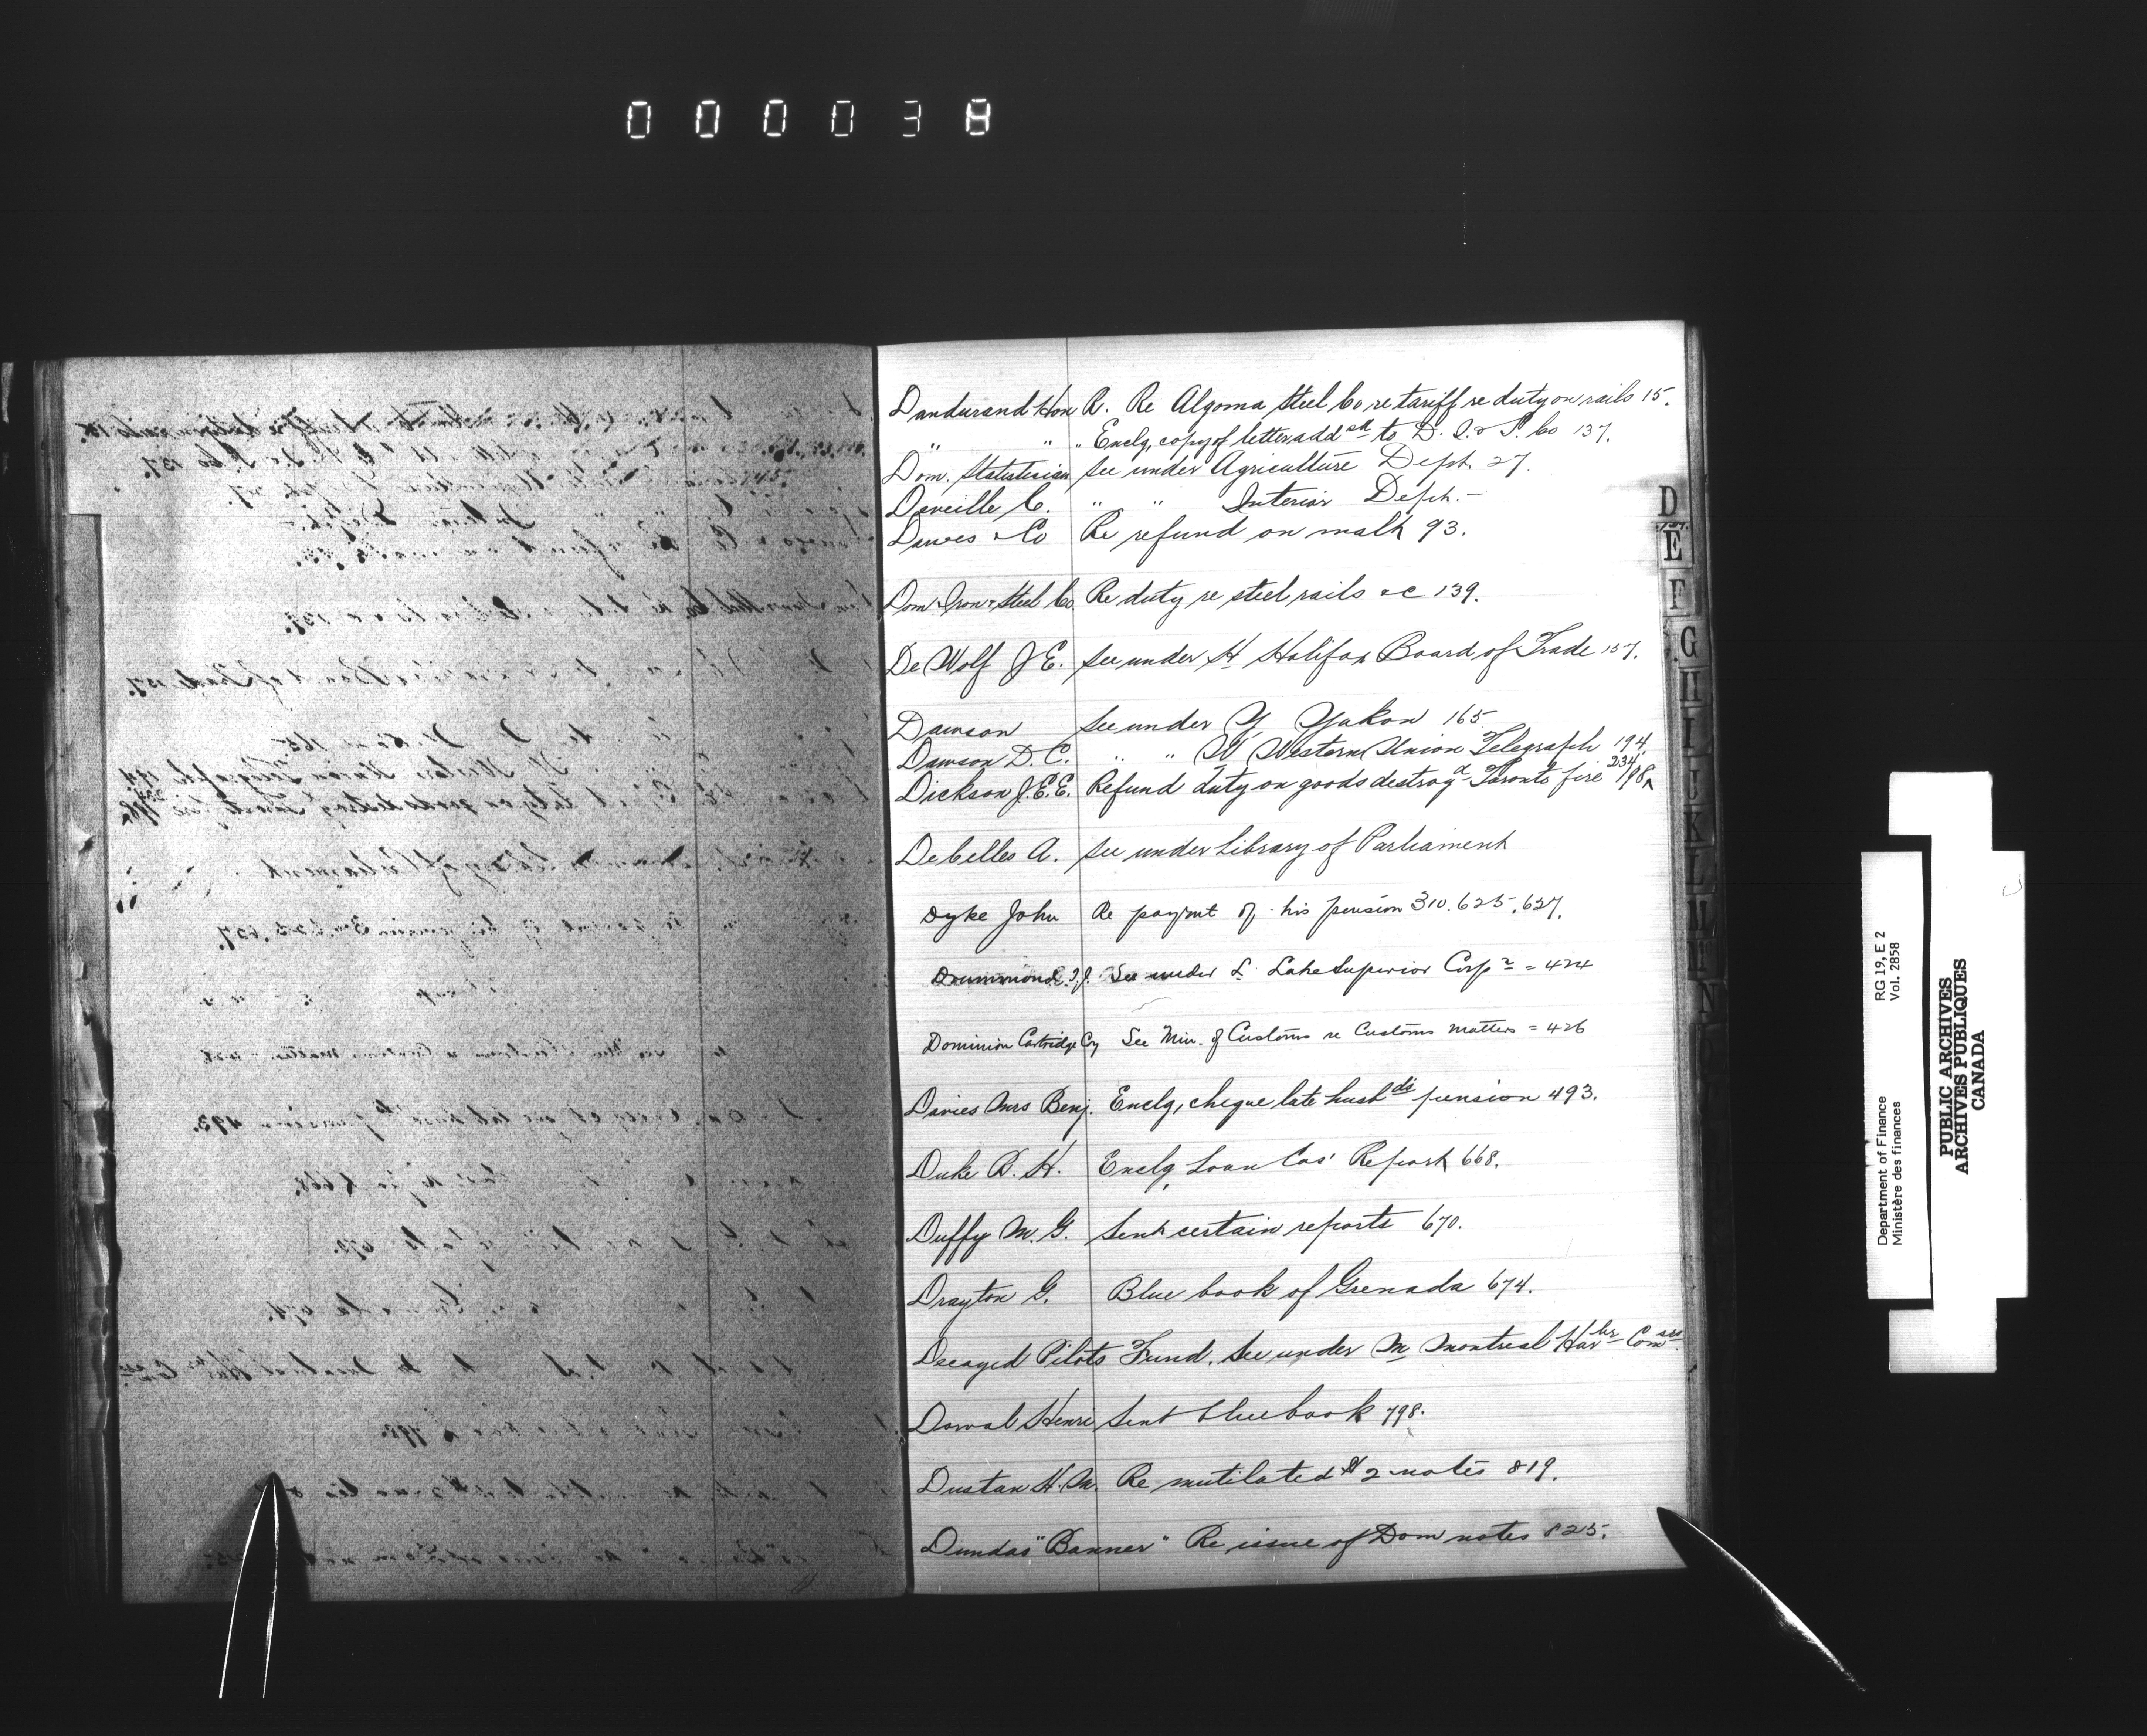 0 0 0 0 3 8
Dandurand Hon R. Re Algoma Steel Co re tariff re duty on rails 15.
" " " Enclg, copy of letter addsd to D. I. & S. Co 137.
Dom. Statistician See under Agriculture Dept. 27.
Deville C. " " Interior Dept. —
Dawes & Co Re refund on malt 93.
Dom. Iron & Steel Co. Re duty re steel rails &c 139.
De Wolf J E. See under H Halifax Board of Trade 157.
Dawson See under Y Yukon 165
Dawson D. C. " " W Western Union Telegraph 194.
Dickson J. E. E. Refund duty on goods destroyd Toronto fire 198, 234
DeCelles A. See under Library of Parliament
Dyke John Re paymt of his pension 310. 625, 627.
Drummond T. J. See under L Lake Superior Corpn = 424
Dominion Cartridge Coy See Min. of Customs re Customs matters = 426
Davies Mrs Benj. Enclg, cheque late husbds pension 493.
Duke R. H. Enclg, Loan Cos' Report 668.
Duffy M. G. Sent certain reports 670.
Drayton G. Blue book of Grenada 674.
Decayed Pilots Fund. See under M Montreal Harbr Comsrs.
Henri Sent blue book 798.
Dustan H. M. Re mutilated $2 notes 819.
Dundas "Banner" Re issue of Dom notes 825.
D
E
F
G
H
I
J
K
L
M
N
Department of Finance RG 19, E 2
Ministère des finances Vol. 2858
PUBLIC ARCHIVES
ARCHIVES PUBLIQUES
CANADA